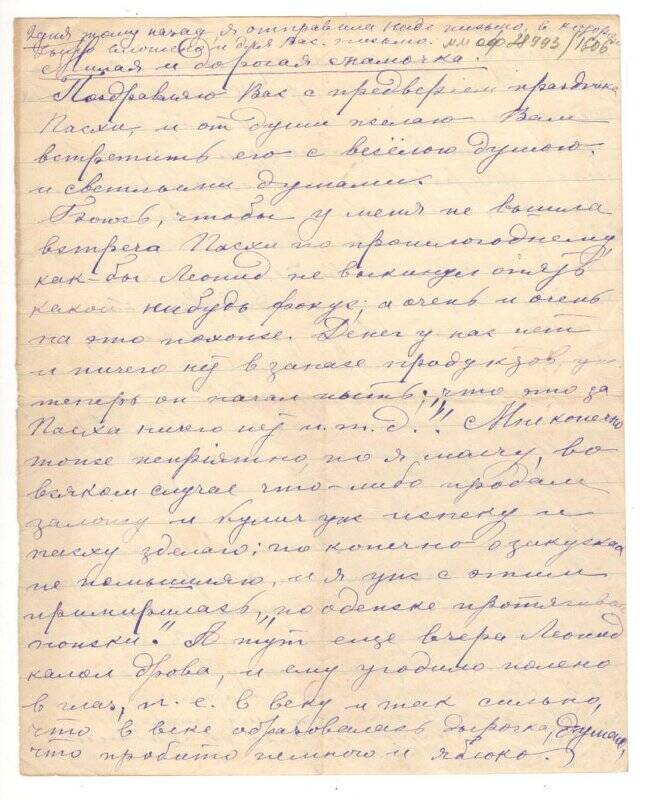 2 дня тому назад я отправила Наде письмо, в котором
было вложено и для Вас письмо. ММ ОФ 28993/1606
Милая и дорогая мамочка.
Поздравляю Вас с предверием праздника
Пасхи, и от души желаю Вам
встретить его с весёлою душою.
и светлыми думами.
Боюсь, чтобы у меня не вышла
встреча Пасхи по прошлогоднему,
как-бы Леонид не выкинул опять
какой нибудь фокус; а очень и очень
на это похоже. Денег у нас нет
и ничего нѣт в запасе продуктов, уж
теперь он начал ныть: "что это за
Пасха ничего нѣт и. т. д." Мне конечно
тоже неприятно, но я молчу, во
всяком случае что-либо продам
заложу и кулич уж испеку и
пасху зделаю; но конечно о закусках
не помышляю, и я уж с этим
примирилась, "по одежке протягивай
ножки." А тут еще вчера Леонид
колол дрова, и ему угодило полено
в глаз, т. е. в веку и так сильно,
что в веке образовалась дырочка, думаю,
что пробито немного и яблоко.